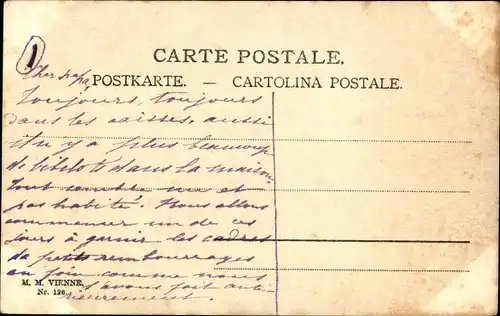 1
CARTE POSTALE.
Cher papa,
POSTKARTE. — CARTOLINA POSTALE.
Toujours, toujours
dans les caisses, aussi
il n'y a plus beaucoup
de bibelots dans la maison.
Tout semble nu et
pas habité. Nous allons
commencer un de ces
jours à garnir les cadres
de petits rembourrages
en foin comme nous
l'avons fait anté-
rieurement.
M. M. VIENNE.
Nr. 126.